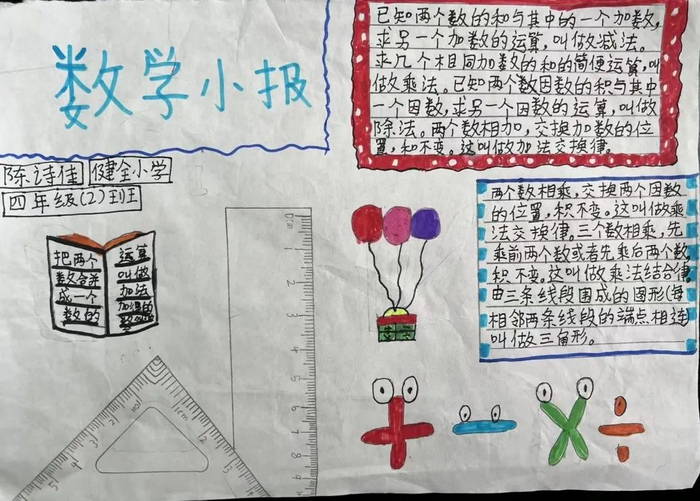 数学小报
陈诗佳 健全小学
四年级(2)班
把两个
数合并
成一个
数的
运算
叫做
加法
已知两个数的和与其中的一个加数,
求另一个加数的运算,叫做减法。
求几个相同加数的和的简便运算,叫
做乘法。已知两个数因数的积与其中
一个因数,求另一个因数的运算,叫做
除法。两个数相加,交换加数的位
置,和不变。这叫做加法交换律。
两个数相乘,交换两个因数
的位置,积不变。这叫做乘
法交换律。三个数相乘,先
乘前两个数或者先乘后两个数
积不变。这叫做乘法结合律
由三条线段围成的图形(每
相邻两条线段的端点相连)
叫做三角形。